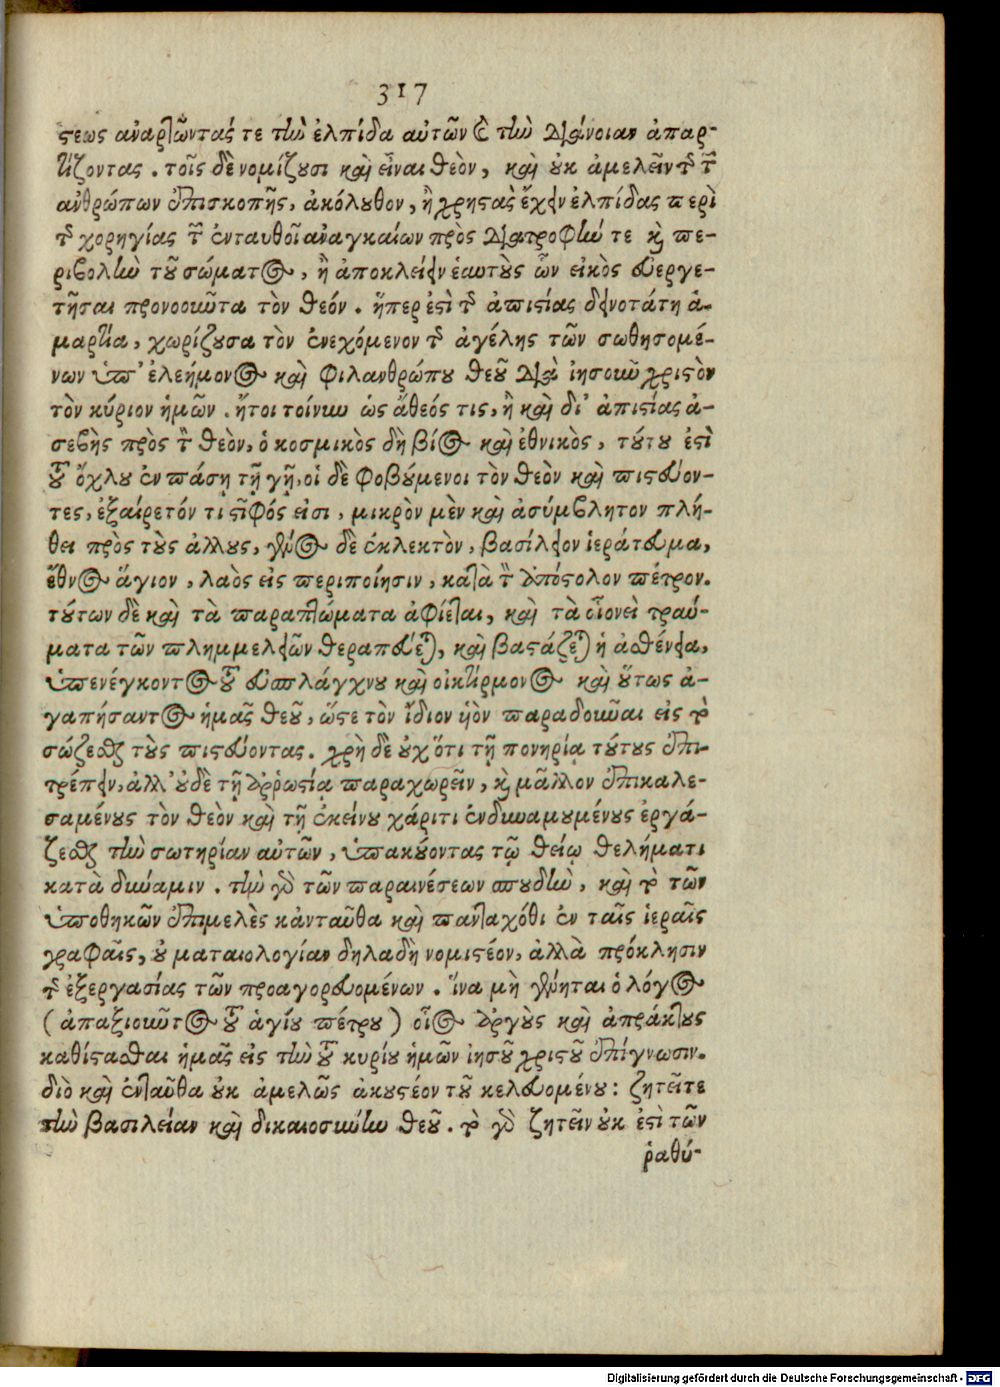 317
στεως ἀναρτῶντάς τε τὴν ἐλπίδα αὐτῶν καὶ τὴν διάνοιαν ἀπαρ-
τίζοντας. τοῖς δὲ νομίζουσι καὶ εἶναι θεὸν, καὶ οὐκ ἀμελεῖν τῆς τῶν
ἀνθρώπων ἐπισκοπῆς, ἀκόλουθον, ἢ χρηστὰς ἔχειν ἐλπίδας περὶ
τῆς χορηγίας τῶν ἐνταυθοῖ ἀναγκαίων πρὸς διατροφήν τε καὶ πε-
ριβολὴν τοῦ σώματος, ἢ ἀποκλείειν ἑαυτοὺς ὧν εἰκὸς εὐεργε-
τῆσαι προνοοῦντα τὸν θεόν. ἥπερ ἐστὶ τῆς ἀπιστίας δεινοτάτη ἁ-
μαρτία, χωρίζουσα τὸν ἐνεχόμενον τῆς ἀγέλης τῶν σωθησομέ-
νων ὑπ' ἐλεήμονος καὶ φιλανθρώπου θεοῦ διὰ ἰησοῦν χριστὸν
τὸν κύριον ἡμῶν. ἤτοι τοίνυν ὡς ἄθεός τις, ἢ καὶ δι' ἀπιστίας ἀ-
σεβὴς πρὸς τὸν θεὸν, ὁ κοσμικὸς δὴ βίος καὶ ἐθνικὸς, τούτου ἐστὶ
τοῦ ὄχλου ἐν πάσῃ τῇ γῇ, οἱ δὲ φοβούμενοι τὸν θεὸν καὶ πιστεύον-
τες, ἐξαίρετόν τι στῖφός εἰσι, μικρὸν μὲν καὶ ἀσύμβλητον πλή-
θει πρὸς τοὺς ἄλλους, γένος δὲ ἐκλεκτὸν, βασίλειον ἱεράτευμα,
ἔθνος ἅγιον, λαὸς εἰς περιποίησιν, κατὰ τὸν ἀπόστολον πέτρον.
τούτων δὲ καὶ τὰ παραπτώματα ἀφίεται, καὶ τὰ οἱονεὶ τραύ-
ματα τῶν πλημμελειῶν θεραπεύεται, καὶ βαστάζεται ἡ ἀσθένεια,
ὑπενέγκοντος τοῦ εὐσπλάγχνου καὶ οἰκτίρμονος καὶ οὕτως ἀ-
γαπήσαντος ἡμᾶς θεοῦ, ὥστε τὸν ἴδιον υἱὸν παραδοῦναι εἰς τὸ
σώζεσθαι τοὺς πιστεύοντας. χρὴ δὲ οὐχ ὅτι τῇ πονηρίᾳ τούτους ἐπι-
τρέπειν, ἀλλ' οὐδὲ τῇ ἀρρωστίᾳ παραχωρεῖν, καὶ μᾶλλον ἐπικαλε-
σαμένους τὸν θεὸν καὶ τῇ ἐκείνου χάριτι ἐνδυναμουμένους ἐργά-
ζεσθαι τὴν σωτηρίαν αὐτῶν, ὑπακούοντας τῷ θείῳ θελήματι
κατὰ δύναμιν. τὴν γὰρ τῶν παραινέσεων σπουδὴν, καὶ τὸ τῶν
ὑποθηκῶν ἐπιμελὲς κἀνταῦθα καὶ πανταχόθι ἐν ταῖς ἱεραῖς
γραφαῖς, οὐ ματαιολογίαν δηλαδὴ νομιστέον, ἀλλὰ πρόκλησιν
τῆς ἐξεργασίας τῶν προαγορευομένων. ἵνα μὴ γένηται ὁ λόγος
(ἀπαξιοῦντος τοῦ ἁγίου πέτρου) οἷος ἀργοὺς καὶ ἀπράκτους
καθίστασθαι ἡμᾶς εἰς τὴν τοῦ κυρίου ἡμῶν ἰησοῦ χριστοῦ ἐπίγνωσιν.
διὸ καὶ ἐνταῦθα οὐκ ἀμελῶς ἀκουστέον τοῦ κελευομένου: ζητεῖτε
τὴν βασιλείαν καὶ δικαιοσύνην θεοῦ. τὸ γὰρ ζητεῖν οὐκ ἐστὶ τῶν
ῥαθύ-
Digitalisierung gefördert durch die Deutsche Forschungsgemeinschaft - DFG